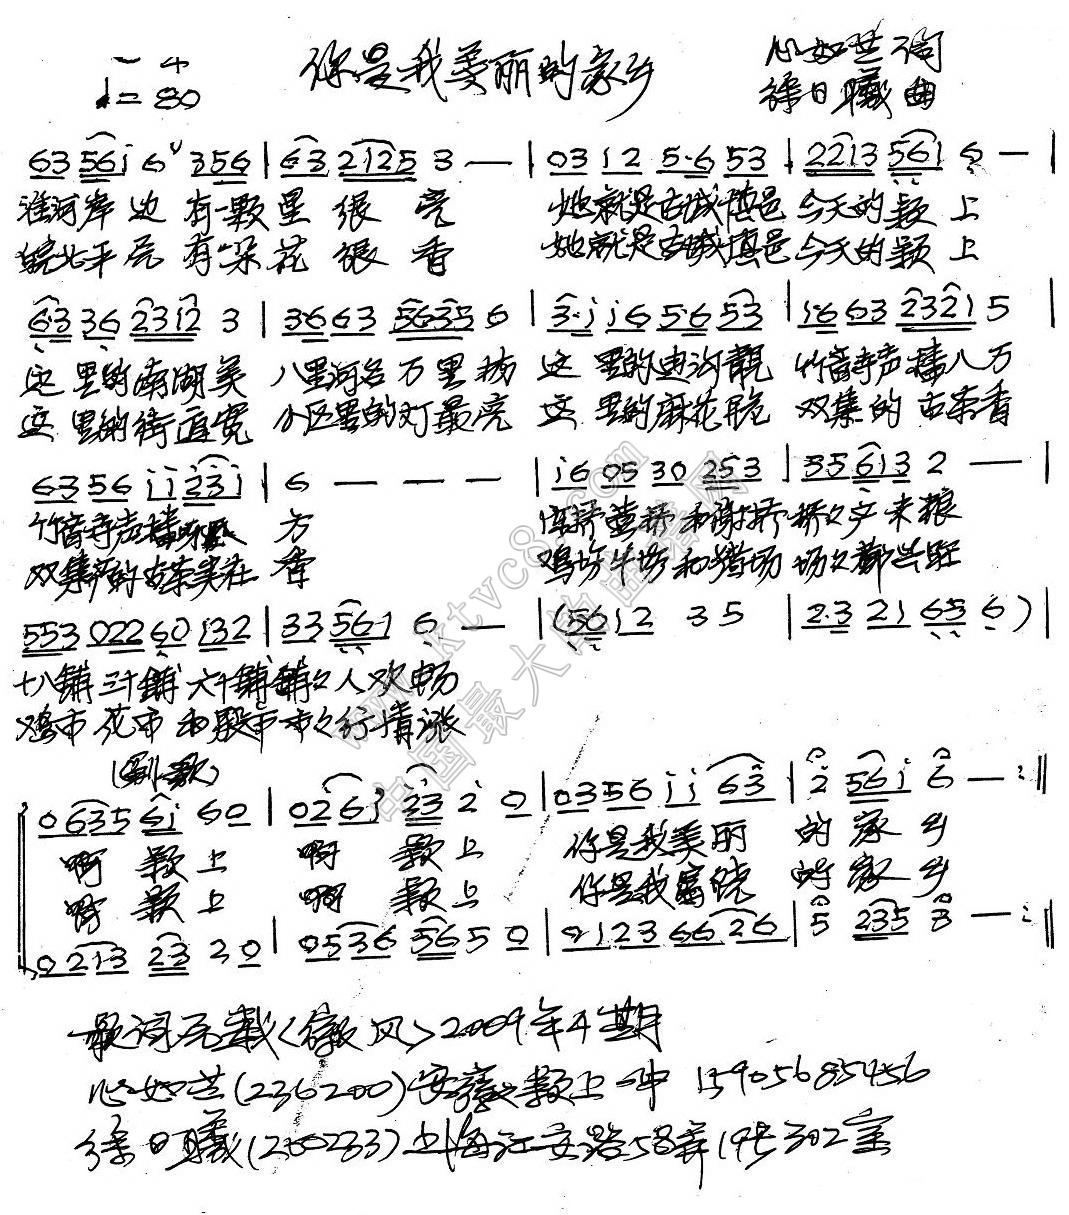 你是我美丽的家乡
心如芒词
♩=80 徐日曦曲
63 561 6 356 | 63 2125 3 — | 03 12 5·6 53 | 2213 561 6 — |
淮河岸边 有一颗星 很 亮 她就是古城慎邑 今天的颍 上
皖北平原 有一朵花 很 香 她就是古城慎邑 今天的颍 上
6·3 36 2312 3 | 3·6 63 5635 6 | 3·i i6 5·6 53 | i·6 63 2321 5 |
这 里的南湖美 八里河名万里扬 这 里的 靓 竹音寺声播八方
这 里的街道宽 小区里的灯最亮 这 里的麻花脆 双集的古茶香
63 56 ii 23i | 6 — — — | i6 05 30 253 | 35 613 2 — |
竹音寺声播 方
双集的古茶实在 香 和 场 场々都兴旺
553 022 60 132 | 33 561 6 — | (5612 3 5 | 2·3 21 65 6) |
十八铺 三十铺 六十铺铺々人欢畅
鸡市 花市 和 市々行情涨
(副歌)
0635 6i 60 | 026i 23 2 0 | 0356 ii 63 | 2 56i 6 — :‖
啊 颍上 啊 颍上 你是我美丽 的家乡
啊 颍上 啊 颍上 你是我富饶 的家乡
0213 23 20 | 0536 56 5 0 | 0123 66 26 | 5 235 3 — :‖
歌词原载〈徽风〉2009年4期
心如芒(236200)安徽颍上一中 15905685456
徐日曦(200233)上海江安路58弄19号302室
www.ktvc8.com
中国最大的曲谱网